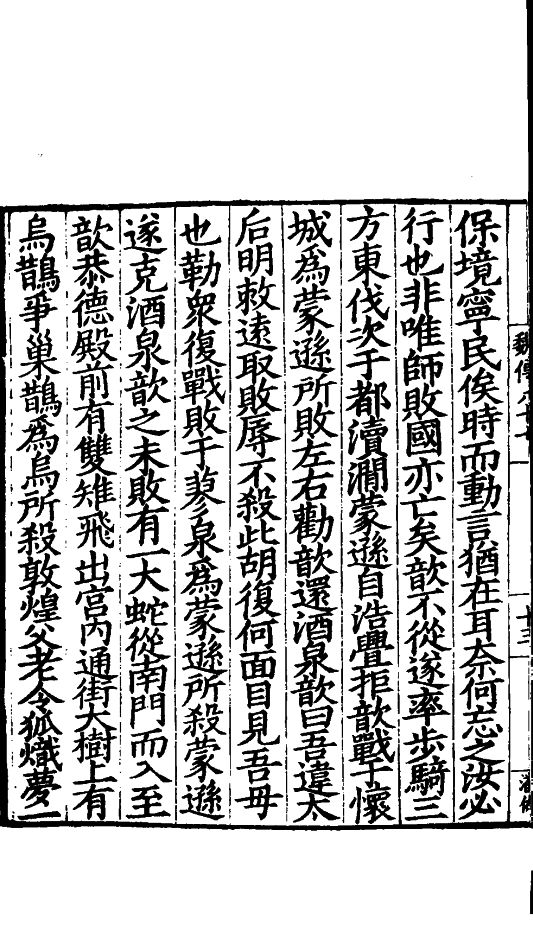 保境寧民俟時而動言猶在耳奈何忘之汝必
行也非唯師敗國亦亡矣歆不從遂率步騎三
方東伐次于都瀆澗蒙遜自浩亹拒歆戰于懷
城爲蒙遜所敗左右勸歆還酒泉歆曰吾違太
后明敕遠取敗辱不殺此胡復何面目見吾母
也勒衆復戰敗于蓼泉爲蒙遜所殺蒙遜
遂克酒泉歆之未敗有一大蛇從南門而入至
歆恭德殿前有雙雉飛出宮內通街大樹上有
烏鵲爭巢鵲爲烏所殺敦煌父老令狐熾夢一
魏傳八十七
十三